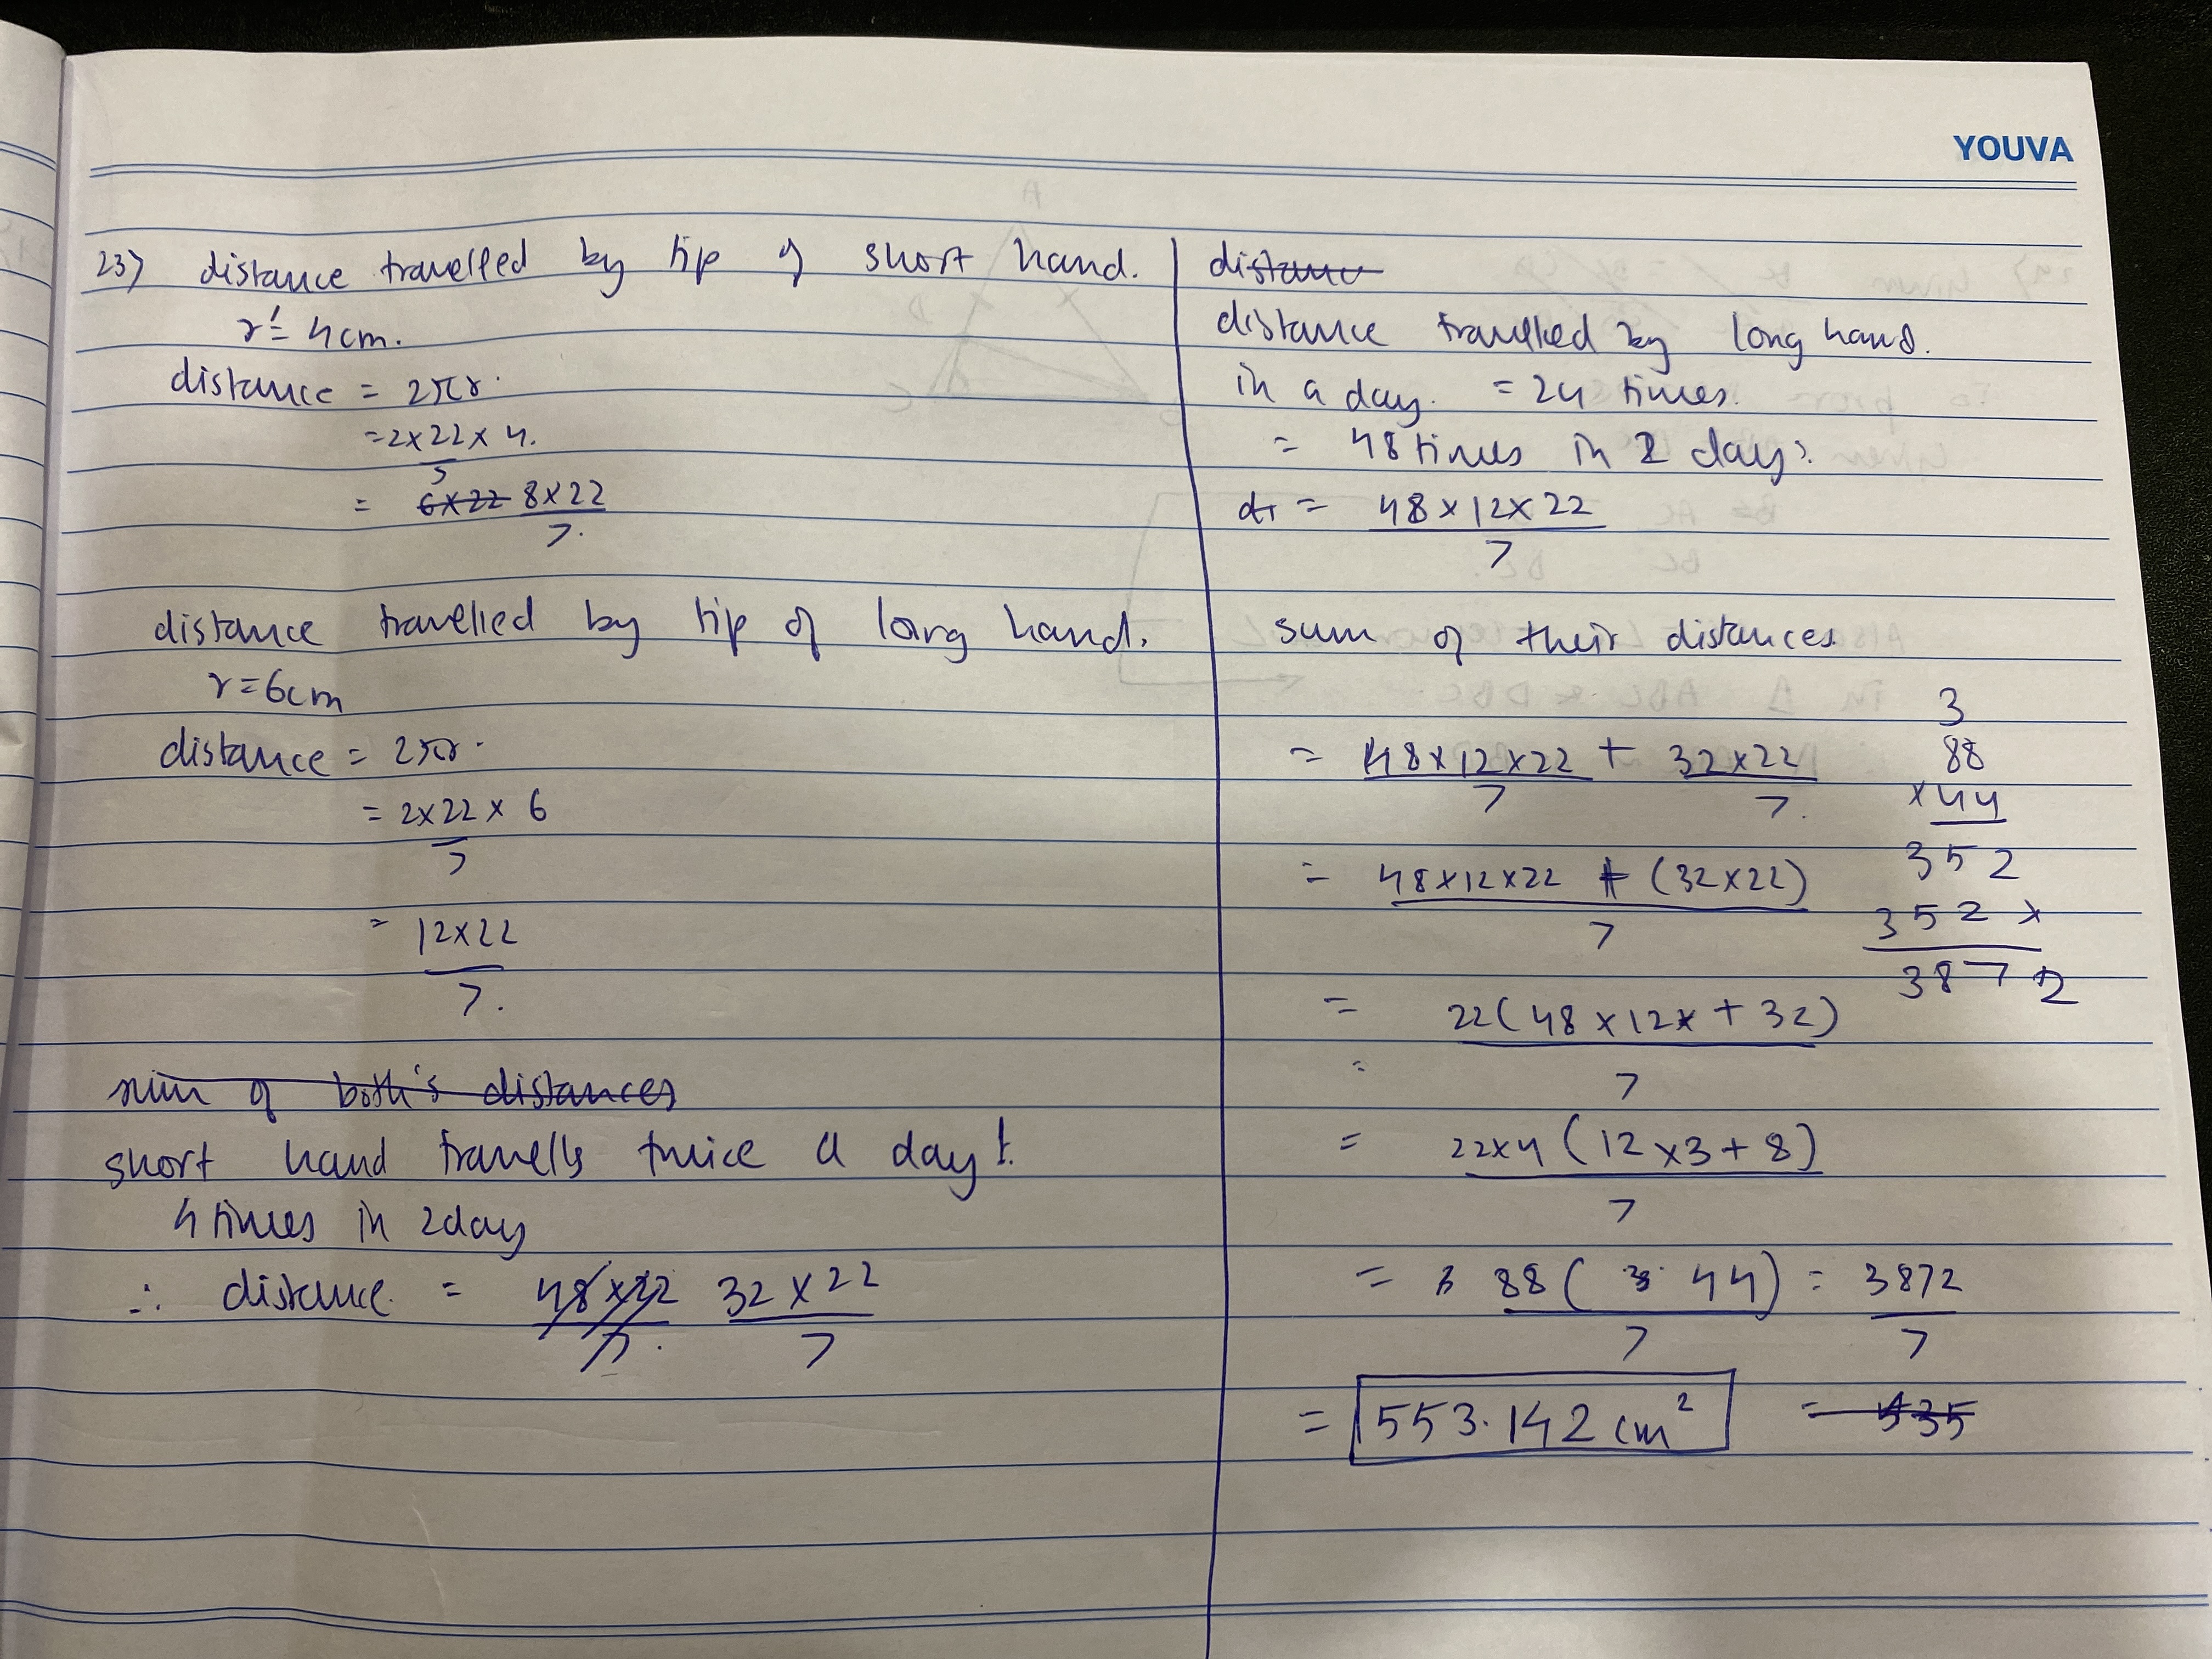 YOUVA
23) distance travelled by tip of short hand.
r = 4cm.
distance = 2πr.
= 2×22×4.
7
= 6×22 8×22
7.
distance travelled by tip of long hand.
r=6cm
distance = 2πr.
= 2×22×6
7
= 12×22
7.
sum of both's distances
short hand travells twice a day.
4 times in 2day
∴ distance. = 48×22 32×22
7. 7
distance
distance travelled by long hand.
in a day. = 24 times.
= 48 times in 2 days.
dt = 48×12×22
7
sum of their distances.
= 48×12×22 + 32×22
7 7.
= 48×12×22 + (32×22)
7
= 22(48×12×+32)
=
7
= 22×4(12×3+8)
7
= 88( 44) = 3872
7 7
= 553.142 cm² = 535
3
88
×44
352
352×
3872